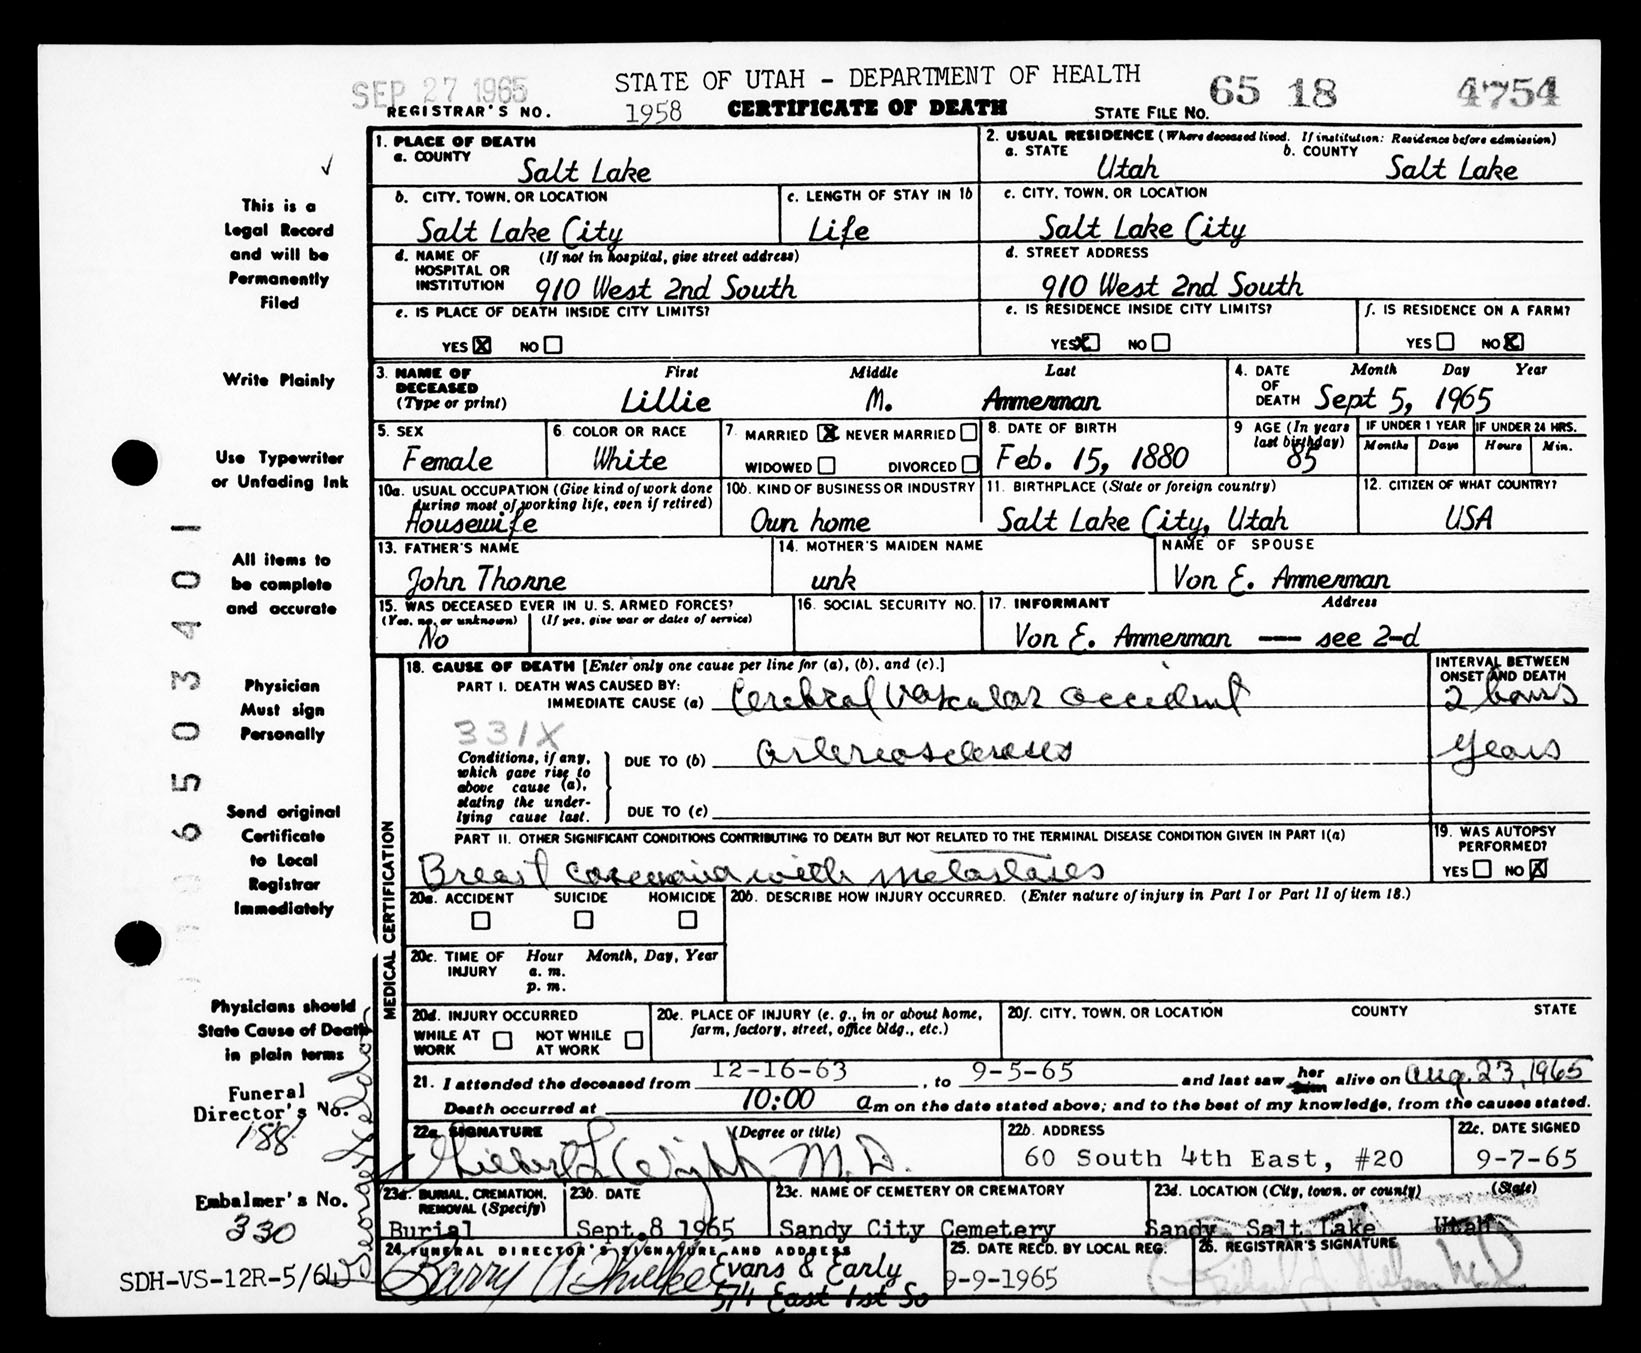 STATE OF UTAH - DEPARTMENT OF HEALTH
SEP 27 1965
REGISTRAR'S NO. 1958 CERTIFICATE OF DEATH STATE FILE No. 65 18 4754
1. PLACE OF DEATH
a. COUNTY
Salt Lake
2. USUAL RESIDENCE (Where deceased lived. If institution: Residence before admission)
a. STATE b. COUNTY
Utah Salt Lake
b. CITY, TOWN, OR LOCATION
Salt Lake City
c. LENGTH OF STAY IN 1b
Life
c. CITY, TOWN, OR LOCATION
Salt Lake City
d. NAME OF HOSPITAL OR INSTITUTION (If not in hospital, give street address)
910 West 2nd South
d. STREET ADDRESS
910 West 2nd South
e. IS PLACE OF DEATH INSIDE CITY LIMITS?
YES X NO
e. IS RESIDENCE INSIDE CITY LIMITS?
YES X NO
f. IS RESIDENCE ON A FARM?
YES NO X
3. NAME OF DECEASED (Type or print)
First Middle Last
Lillie M. Ammerman
4. DATE OF DEATH Month Day Year
Sept 5, 1965
5. SEX
Female
6. COLOR OR RACE
White
7. MARRIED X NEVER MARRIED
WIDOWED DIVORCED
8. DATE OF BIRTH
Feb. 15, 1880
9 AGE (In years last birthday)
85
IF UNDER 1 YEAR IF UNDER 24 HRS.
Months Days Hours Min.
10a. USUAL OCCUPATION (Give kind of work done during most of working life, even if retired)
Housewife
10b. KIND OF BUSINESS OR INDUSTRY
Own home
11. BIRTHPLACE (State or foreign country)
Salt Lake City, Utah
12. CITIZEN OF WHAT COUNTRY?
USA
13. FATHER'S NAME
John Thorne
14. MOTHER'S MAIDEN NAME
unk
NAME OF SPOUSE
Von E. Ammerman
15. WAS DECEASED EVER IN U.S. ARMED FORCES?
(Yes, no, or unknown) (If yes, give war or dates of service)
No
16. SOCIAL SECURITY NO.
17. INFORMANT Address
Von E. Ammerman — see 2-d
MEDICAL CERTIFICATION
18. CAUSE OF DEATH [Enter only one cause per line for (a), (b), and (c).]
INTERVAL BETWEEN ONSET AND DEATH
PART I. DEATH WAS CAUSED BY:
IMMEDIATE CAUSE (a) Cerebral vascular accident 2 hours
331X
Conditions, if any, which gave rise to above cause (a), stating the underlying cause last.
DUE TO (b) arteriosclerosis years
DUE TO (c)
PART II. OTHER SIGNIFICANT CONDITIONS CONTRIBUTING TO DEATH BUT NOT RELATED TO THE TERMINAL DISEASE CONDITION GIVEN IN PART I(a)
Breast carcinoma with metastases
19. WAS AUTOPSY PERFORMED?
YES NO X
20a. ACCIDENT SUICIDE HOMICIDE
20b. DESCRIBE HOW INJURY OCCURRED. (Enter nature of injury in Part I or Part II of item 18.)
20c. TIME OF INJURY Hour Month, Day, Year
a. m.
p. m.
20d. INJURY OCCURRED
WHILE AT WORK NOT WHILE AT WORK
20e. PLACE OF INJURY (e. g., in or about home, farm, factory, street, office bldg., etc.)
20f. CITY, TOWN, OR LOCATION COUNTY STATE
21. I attended the deceased from 12-16-63, to 9-5-65 and last saw her alive on Aug. 23, 1965
Death occurred at 10:00 am on the date stated above; and to the best of my knowledge, from the causes stated.
22a. SIGNATURE (Degree or title)
Wright M.D.
22b. ADDRESS
60 South 4th East, #20
22c. DATE SIGNED
9-7-65
23a. BURIAL, CREMATION, REMOVAL (Specify)
Burial
23b. DATE
Sept. 8 1965
23c. NAME OF CEMETERY OR CREMATORY
Sandy City Cemetery
23d. LOCATION (City, town, or county) (State)
Sandy Salt Lake Utah
24. FUNERAL DIRECTOR'S SIGNATURE AND ADDRESS
Barry Evans & Early
574 East 1st So
25. DATE RECD. BY LOCAL REG.
9-9-1965
26. REGISTRAR'S SIGNATURE
This is a
Legal Record
and will be
Permanently
Filed
Write Plainly
Use Typewriter
or Unfading Ink
All items to
be complete
and accurate
Physician
Must sign
Personally
Send original
Certificate
to Local
Registrar
Immediately
Physicians should
State Cause of Death
in plain terms
Funeral
Director's No.
188
Embalmer's No.
330
SDH-VS-12R-5/